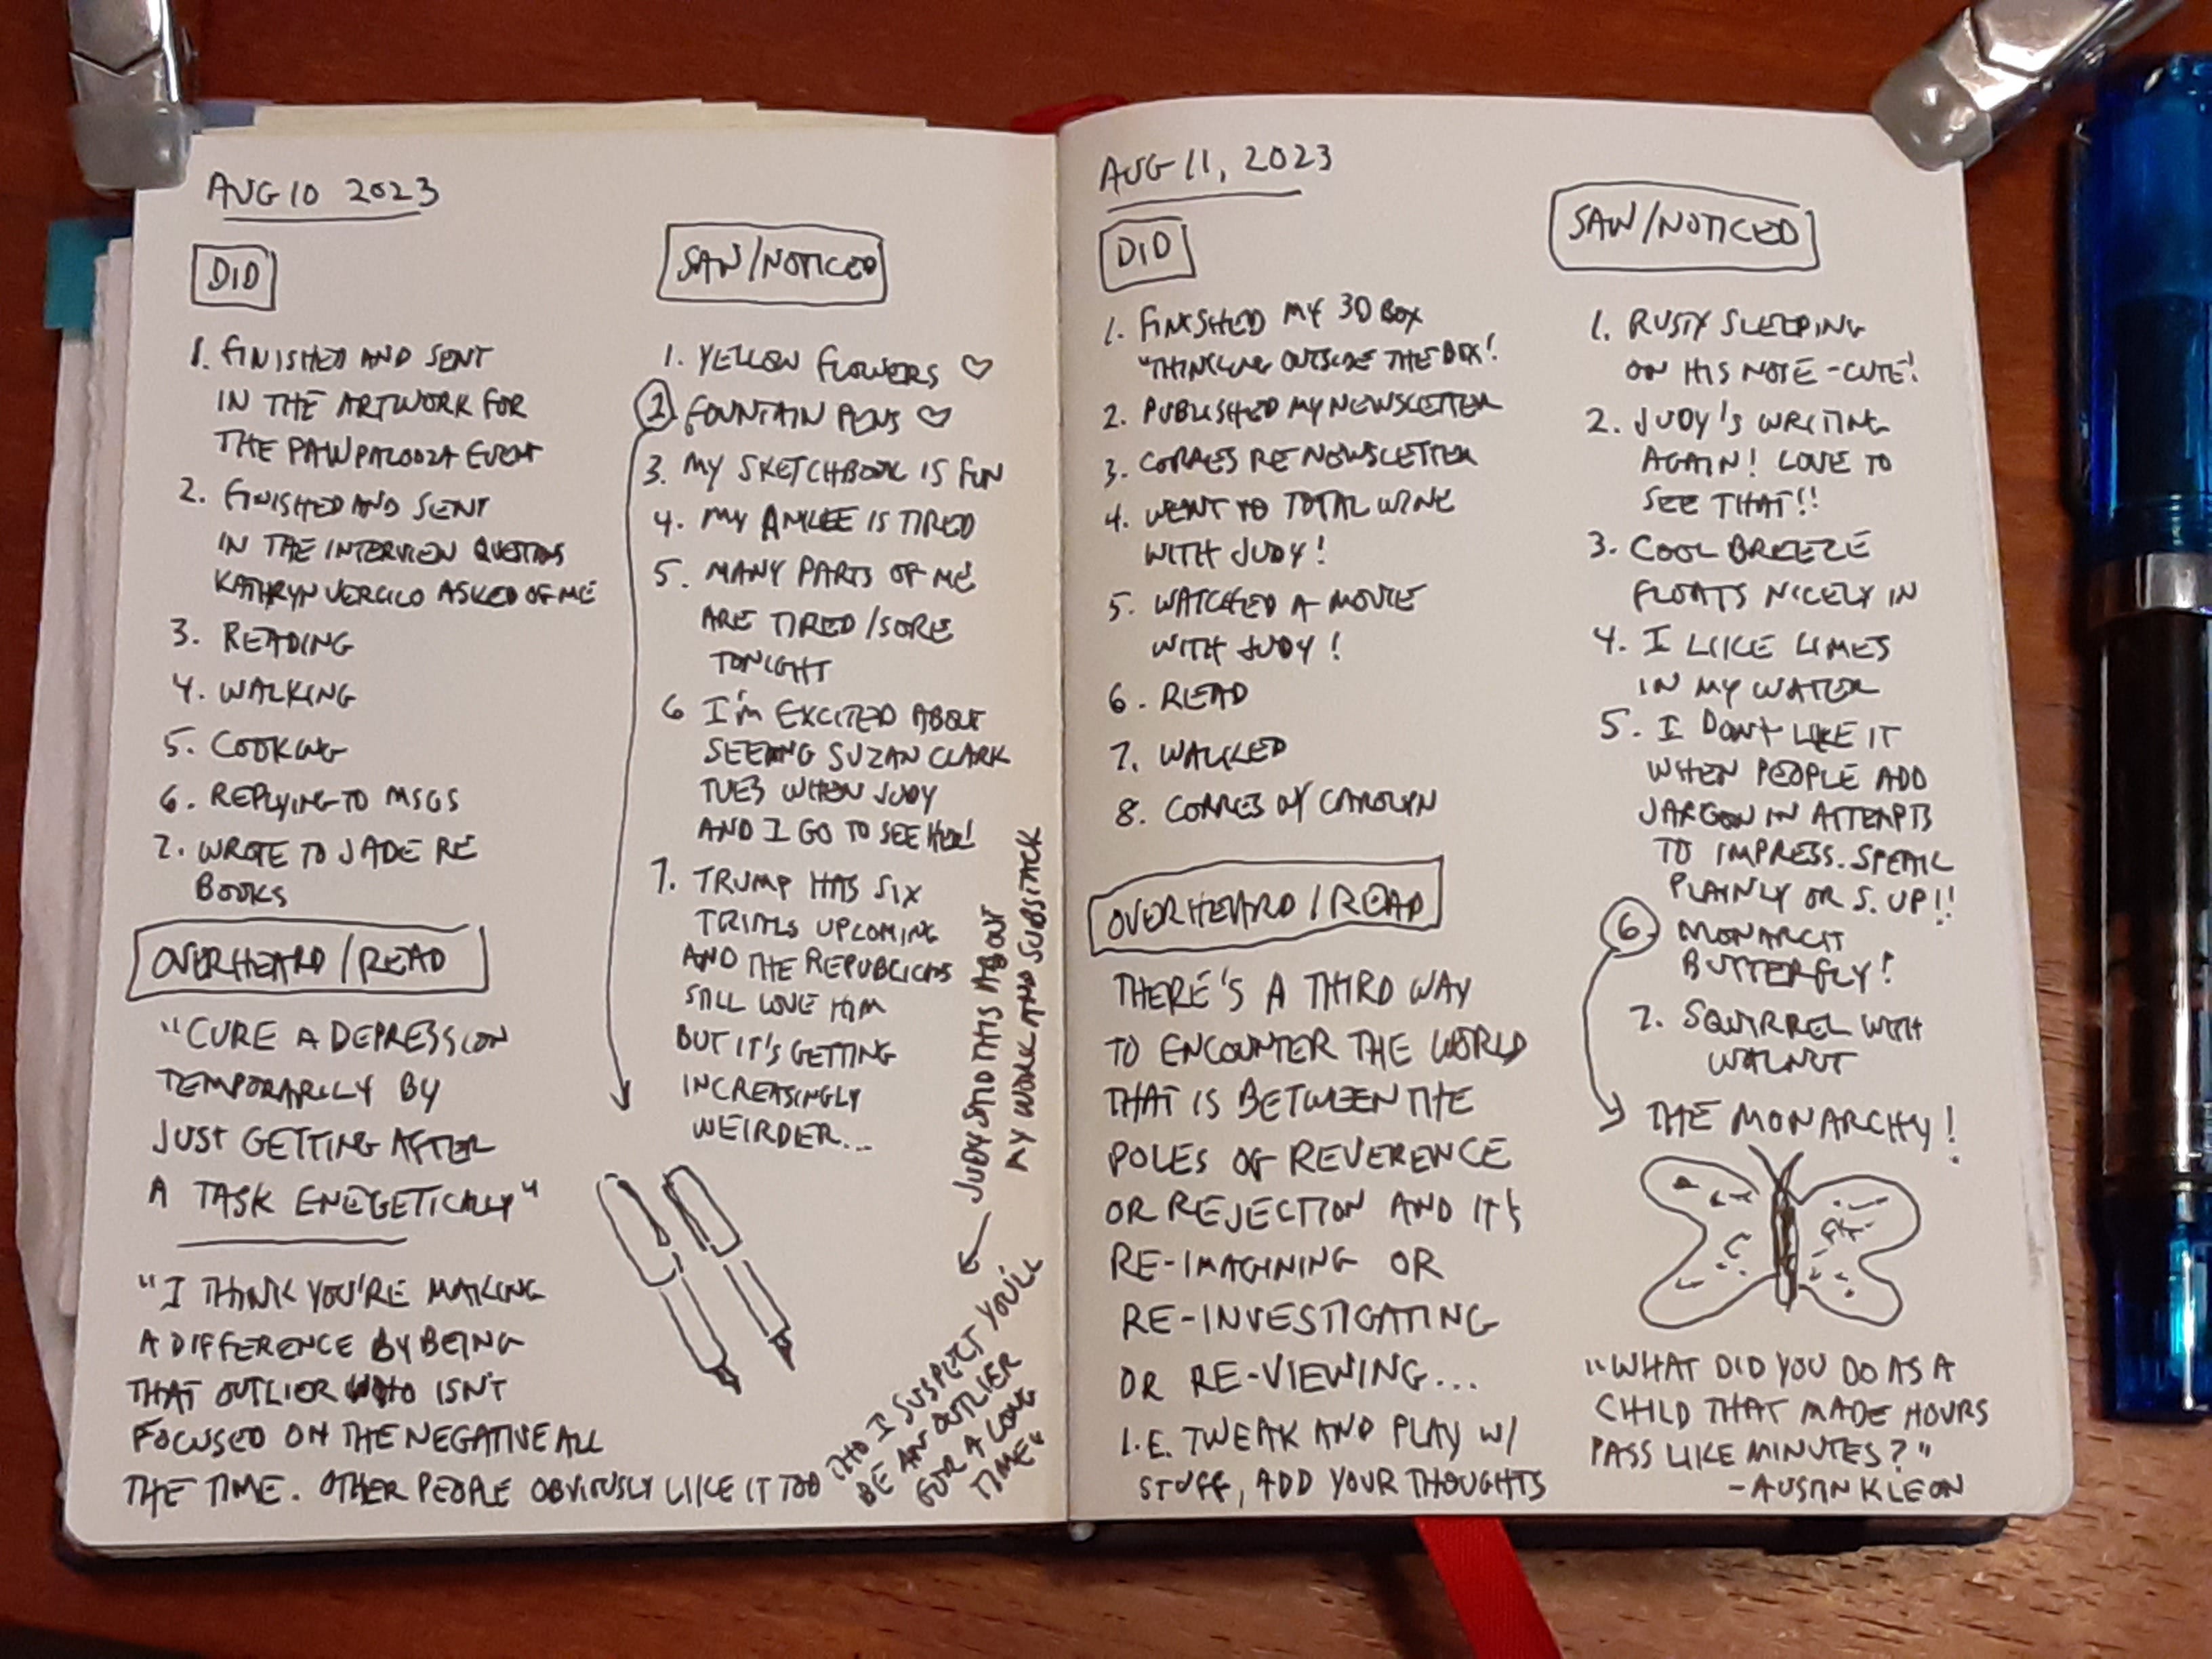 AUG 10 2023
DID
1. FINISHED AND SENT
IN THE ARTWORK FOR
THE PAWPALOOZA EVENT
2. FINISHED AND SENT
IN THE INTERVIEW QUESTIONS
KATHRYN VERCILLO ASKED OF ME
3. READING
4. WALKING
5. COOKING
6. REPLYING TO MSGS
7. WROTE TO JADE RE
BOOKS
OVERHEARD / READ
"CURE A DEPRESSION
TEMPORARILY BY
JUST GETTING AFTER
A TASK ENEGETICALLY"
"I THINK YOU'RE MAKING
A DIFFERENCE BY BEING
THAT OUTLIER WHO ISN'T
FOCUSED ON THE NEGATIVE ALL
THE TIME. OTHER PEOPLE OBVIOUSLY LIKE IT TOO
THO I SUSPECT YOU'LL
BE AN OUTLIER
FOR A LONG
TIME"
JUDY SAID THIS ABOUT
MY WORK AND SUBSTACK
SAW/NOTICED
1. YELLOW FLOWERS ♡
2 FOUNTAIN PENS ♡
3. MY SKETCHBOOK IS FUN
4. MY ANKLE IS TIRED
5. MANY PARTS OF ME
ARE TIRED/SORE
TONIGHT
6 I'M EXCITED ABOUT
SEEING SUZAN CLARK
TUES WHEN JUDY
AND I GO TO SEE HER!
7. TRUMP HAS SIX
TRIALS UPCOMING
AND THE REPUBLICANS
STILL LOVE HIM
BUT IT'S GETTING
INCREASINGLY
WEIRDER...
AUG 11, 2023
DID
1. FINISHED MY 3D BOX
"THINKING OUTSIDE THE BOX!
2. PUBLISHED MY NEWSLETTER
3. CORRES RE NEWSLETTER
4. WENT TO TOTAL WINE
WITH JUDY!
5. WATCHED A MOVIE
WITH JUDY!
6. READ
7. WALKED
8. CORRES W/ CAROLYN
OVERHEARD / READ
THERE'S A THIRD WAY
TO ENCOUNTER THE WORLD
THAT IS BETWEEN THE
POLES OF REVERENCE
OR REJECTION AND IT'S
RE-IMAGINING OR
RE-INVESTIGATING
OR RE-VIEWING...
I.E. TWEAK AND PLAY W/
STUFF, ADD YOUR THOUGHTS
SAW/NOTICED
1. RUSTY SLEEPING
ON HIS NOSE - CUTE!
2. JUDY'S WRITING
AGAIN! LOVE TO
SEE THAT!!
3. COOL BREEZE
FLOATS NICELY IN
4. I LIKE LIMES
IN MY WATER
5. I DON'T LIKE IT
WHEN PEOPLE ADD
JARGON IN ATTEMPTS
TO IMPRESS. SPEAK
PLAINLY OR S. UP!!
6. MONARCH
BUTTERFLY!
7. SQUIRREL WITH
WALNUT
THE MONARCHY!
"WHAT DID YOU DO AS A
CHILD THAT MADE HOURS
PASS LIKE MINUTES?"
- AUSTIN KLEON